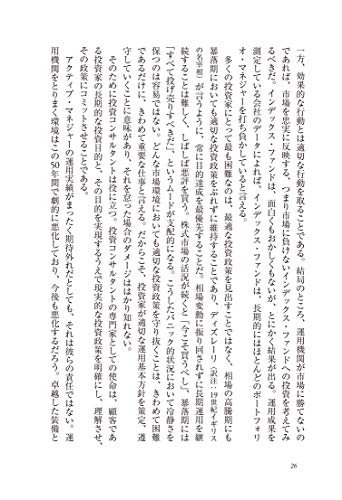 一方、効果的な行動とは適切な行動を取ることである。結局のところ、運用機関が市場に勝てないの
であれば、市場を忠実に反映する、つまり市場に負けないインデックス・ファンドへの投資を考えてみ
るべきだ。インデックス・ファンドは、面白くもおかしくもないが、とにかく結果が出る。運用成果を
測定している会社のデータによれば、インデックス・ファンドは、長期的にはほとんどのポートフォリ
オ・マネジャーを打ち負かしている。
多くの投資家にとって最も困難なのは、最適な投資政策を見出すことではなく、相場の高騰期にも
暴落期においても適切な投資政策をぶれずに維持することであり、ディズレーリ（訳注：19世紀イギリス
の名宰相）が言うように、常に「目的達成を最優先することだ。相場変動に振り回されずに長期運用を継
続することは難しく、しばしば悪評を買う。株式市場の活況が続くと「今こそ買うべし」、暴落期には
「すべて投げ売りすべきだ」というムードが支配的になる。こうしたパニック的状況において冷静さを
保つのは容易ではない。どんな市場環境においても適切な投資政策を守り抜くことは、きわめて困難
であるだけに、きわめて重要な仕事と言える。だからこそ、投資家が適切な運用基本方針を策定、遵
守していくことに意味があり、それを怠った場合のダメージははかり知れない。
そのために投資コンサルタントは役に立つ。投資コンサルタントの専門家としての使命は、顧客であ
る投資家の長期的な投資目的と、その目的を実現するうえで現実的な投資政策を明確にし、理解させ、
その政策にコミットさせることである。
アクティブ・マネジャーの運用実績がまったく期待外れだとしても、それは彼らの責任ではない。運
用機関をとりまく環境はこの50年間で劇的に悪化しており、今後も悪化するだろう。卓越した装備と
26